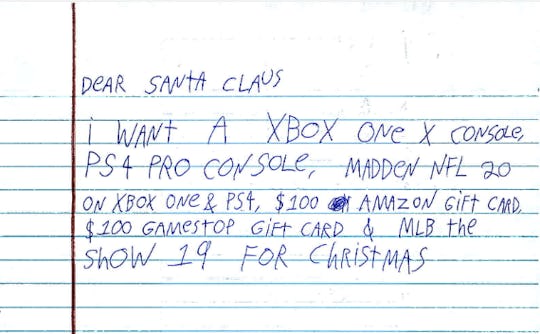 DEAR SANTA CLAUS
i WANT A XBOX ONE X CONSOLE,
PS4 PRO CONSOLE, MADDEN NFL 20
ON XBOX ONE & PS4, $100 AMAZON GiFt CARD,
$100 GAMESTOP GiFt CARD & MLB the
ShOW 19 FOR ChRiStMAS